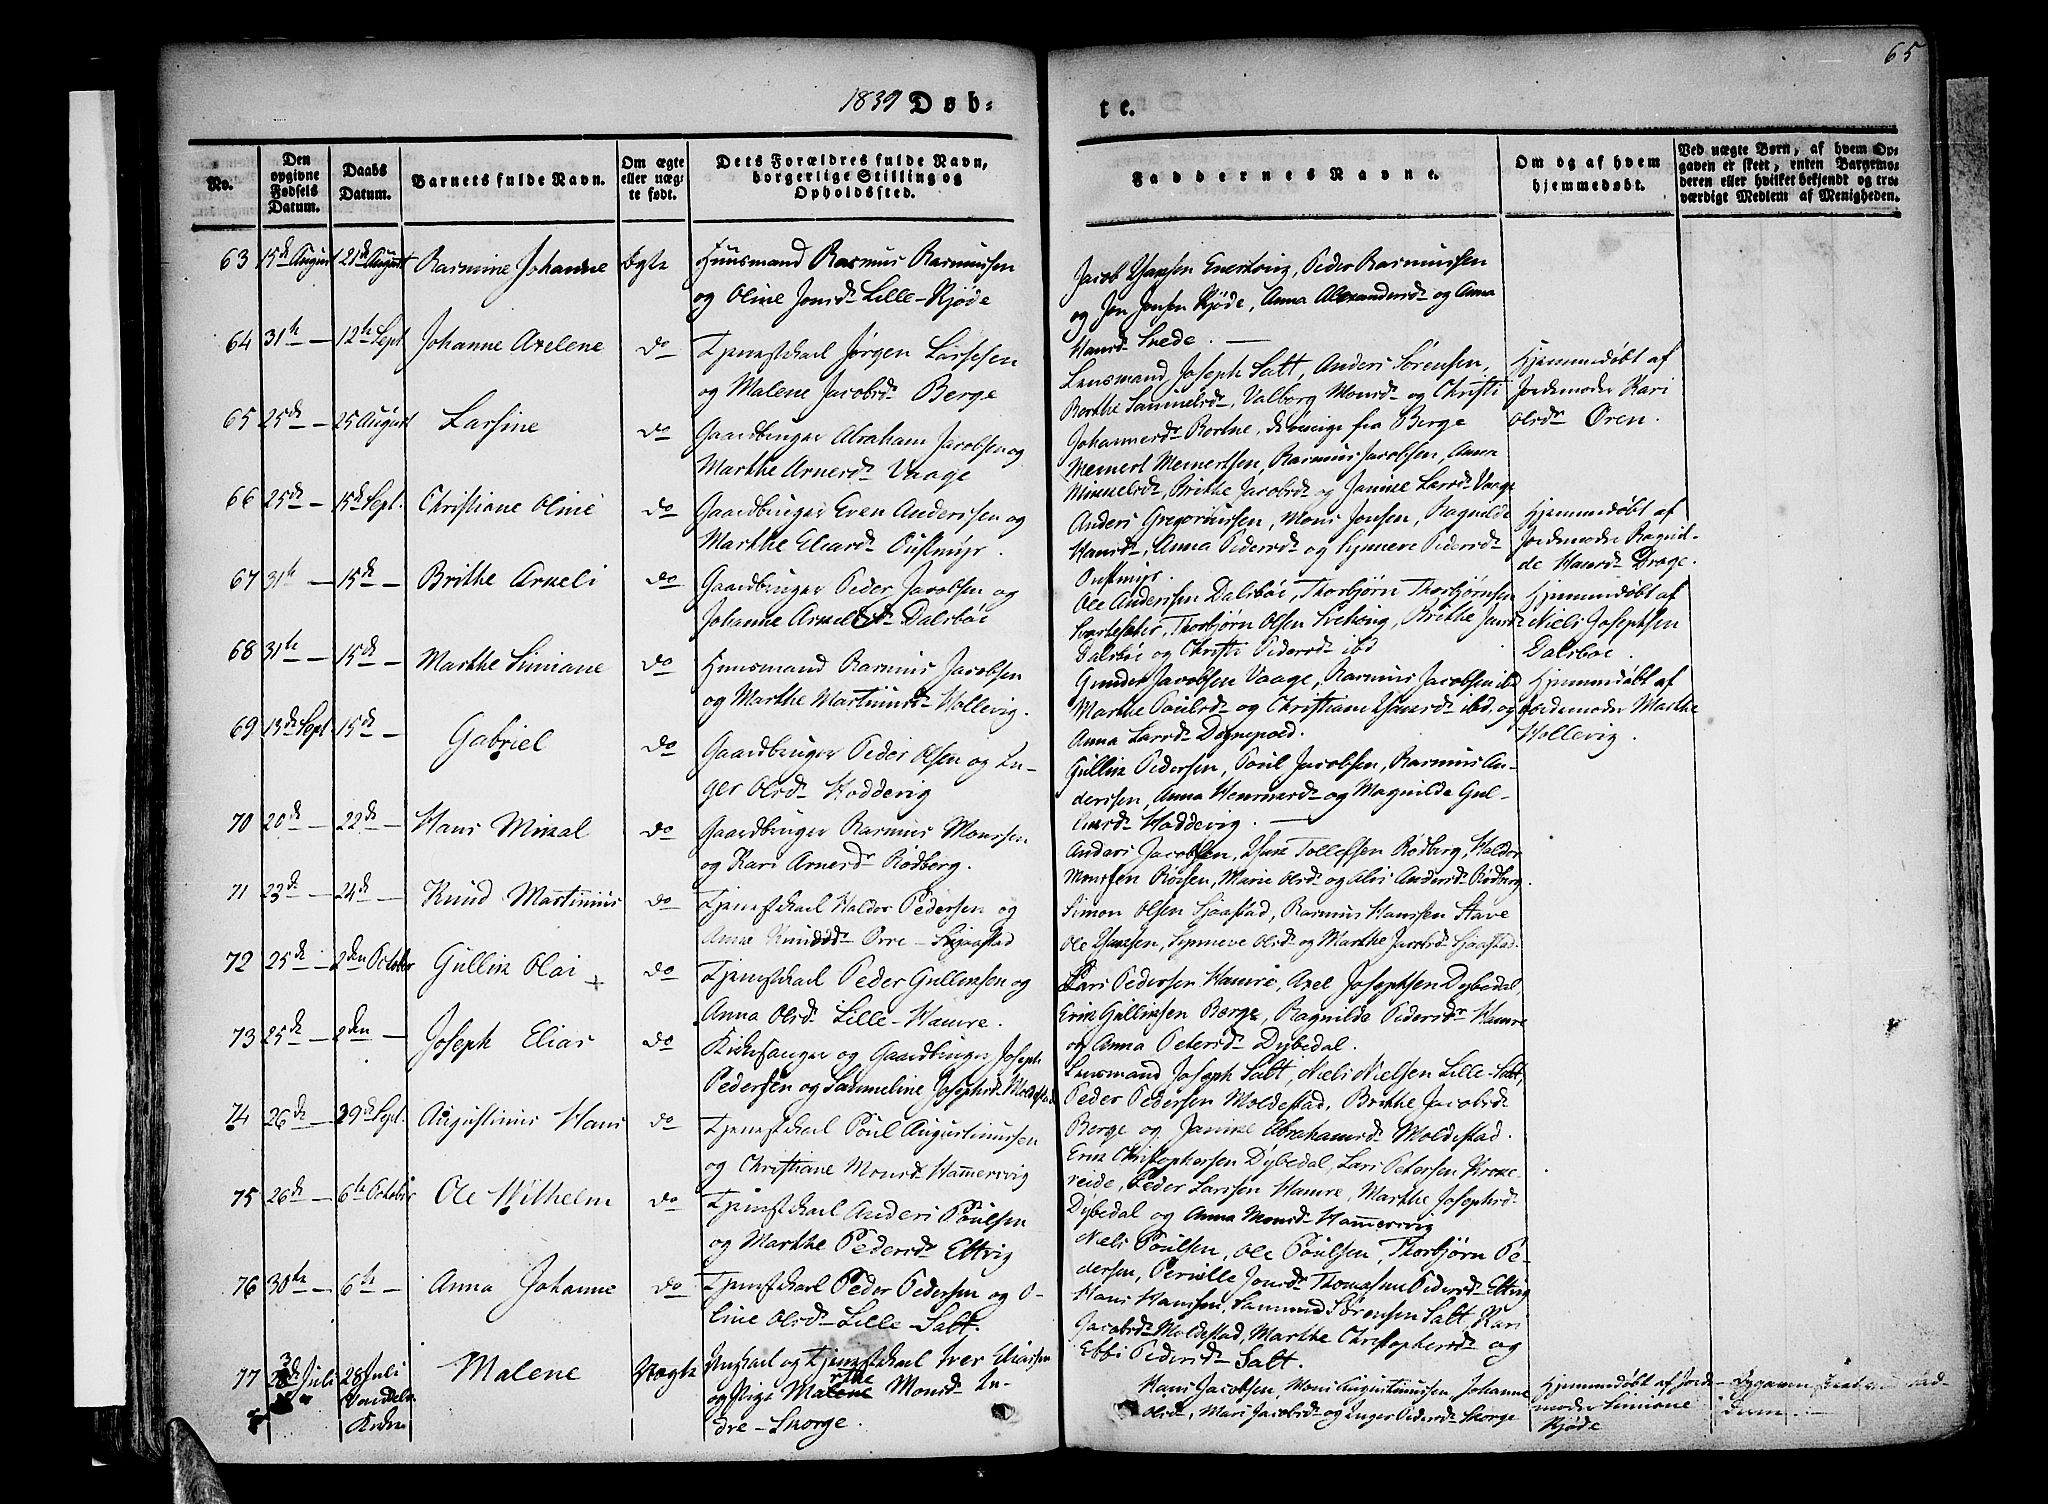 65
1839 Døb-
te.
No.
Den opgivne Fødsels Datum.
Daabs Datum.
Barnets fulde Navn.
Om ægte eller uægte født.
Dets Forældres fulde Navn, borgerlige Stilling og Opholdssted.
Faddernes Navne.
Om og af hvem hjemmedøbt.
Ved uægte Børn, af hvem Opgaven er skeet, enten Barnemoderen eller hvilket bekjendt og troværdigt Medlem af Menigheden.
63 15de August 21de August Rasmine Johanne ægte Huusmand Rasmus Rasmussen
og Oline Jonsd. Lille-Kjøde
Jacob Hansen, Peder Rasmussen
og Jon Jonsen Kjøde, Anna Alexandersd. og Anna
Hansd.
64 31te — 12te Sept Johanne Axelene do Tjenestekarl Jørgen Lassesen
og Malene Jacobsd. Berge
Lensmand Joseph Salt, Anders Sørensen,
Berthe Samuelsd., Valborg Monsd. og Christi
Johannesd. fra Berge
Hjemmedøbt af
Jordemoder Kari
Olsd. Øren.
65 25de — 25 August Larsine do Gaardbruger Abraham Jacobsen og
Marthe Arnesd. Vaage
Meinert Meinertsen, Rasmus Jacobsen, Anna
Mikkelsd., Brithe Jacobsd. og Janike Larsd. Vaage
66 25de — 15de Sept. Christiane Oline do Gaardbruger Even Anderssen og
Marthe Eliasd. Oustmyr.
Anders Gregoriussen, Mons Jonsen, Ragnilde
Hansd., Anna Pedersd. og Synneve Pedersd.
Oustmyr.
Hjemmedøbt af
Jordemoder Ragnil-
de Hansd. Drage.
67 31te — 15de — Brithe Axeli do Gaardbruger Peder Jacobsen og
Johanne Axelsd. Dalsbøe
Ole Anderssen Dalsbøe, Thorbjørn Thorbjørnsen
Thorbjørn Olsen, Brithe Jansd.
Dalsbøe og Christi Pedersd. ibd
Hjemmedøbt af
Niels Josephsen
Dalsbøe.
68 31te — 15de — Marthe Simiane do Huusmand Rasmus Jacobsen
og Marthe Martinusd. Hollevig.
Gunder Jacobsen Vaage, Rasmus Jacobsen ibd
Marthe Poulsd. og Christiane Hansd. ibd. og
Anna Larsd. Dragepold.
Hjemmedøbt af
Jordemoder Marthe
Hollevig.
69 13de Sept 15de — Gabriel do Gaardbruger Peder Olsen og In-
ger Olsd. Hoddevig
Gullik Pedersen, Poul Jacobsen, Rasmus An-
derssen, Anna og Magnilde Gul-
liksd. Hoddevig. —
70 20de — 22de — Hans Mikal do Gaardbruger Rasmus Monssen
og Kari Arnesd. Rødberg.
Anders Jacobsen, Tollefsen Rødberg, Haldor
Monssen, Marie Olsd. og Andersd. Rødberg.
71 23de — 24de — Knud Martinus do Tjenestekarl Haldor Pedersen og
Anne Knudsd. Orre-Sjaastad
Simon Olsen Sjaastad, Rasmus Hanssen Stave
Ole Hansen, Synneve Olsd. og Marthe Jacobsd. Sjaastad.
72 25de — 2den October Gullik Olai + do Tjenestekarl Peder Gulliksen og
Anna Olsd. Lille-Hamre.
Lars Pedersen Hamre, Axel Josephsen Dybedal,
Erik Gulliksen Berge, Ragnilda Pedersd. Hamre
og Anna Petersd. Dybedal.
73 25de — 2den — Joseph Elias do Kirkesanger og Gaardbruger Joseph
Pedersen og Sammeline Josephsd. Moldestad
Lensmand Joseph Salt, Niels Nielsen Lille-Salt,
Peder Pedersen Moldestad, Brithe Jacobsd.
Berge og Janike Abrahamsd. Moldestad.
74 26de — 29de Sept. Augustinus Hans do Tjenestekarl Poul Augustinussen
og Christiane Monsd. Hammersvig
Erik Christophersen Dybedal, Lars Petersen
Peder Larssen Hamre, Marthe Josephsd.
Dybedal og Anna Monsd. Hammersvig
75 26de — 6te October Ole Wilhelm do Tjenestekarl Anders Poulsen
og Marthe Pedersd. Ettvig
Niels Poulsen, Ole Poulsen, Thorbjørn Pe-
dersen, Pernille Jonsd. Thomasine Pedersd. Ettvig
76 30te — 6te — Anna Johanne do Tjenestekarl Peder Pedersen og O-
line Olsd. Lille-Salt.
Hans Hanssen, Samuel Sørensen Salt, Kari
Jacobsd. Moldestad, Marthe Christophersd. og
Ebbi Pedersd. Salt.
77 Juli 28 Juli Malene Uægte Ungkarl og Tjenestekarl Iver Eliassen
og Pige Marthe Monsd. In-
dre-Skorge.
Hans Jacobsen, Mons Augustinussen, Johanne
Olsd., Mari Jacobsd. og Inger Pedersd. Skorge
Hjemmedøbt af Jorde-
moder Simiane
Kjøde
Opgaven skeet ved Fad-
deren.